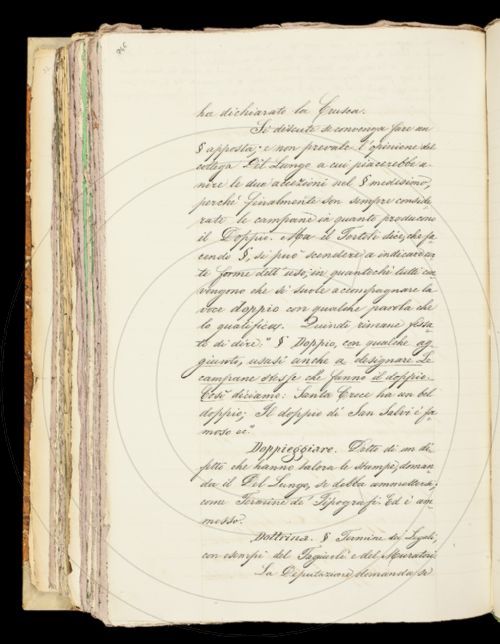 ha dichiarato la Crusca.
Si discute se convenga fare un
§ apposta, e non prevale l'opinione del
collega Del Lungo a cui piacerebbe u-
nire le due accezioni nel § medesimo,
perché finalmente son sempre conside-
rate le campane in quanto producono
il Doppio. Ma il Tortoli dice, che fa-
cendo §, si può scendere a indicare cer-
te forme dell'uso, in quantoché tutti con-
vengono che si suole accompagnare la
voce doppio con qualche parola che
lo qualifica. Quindi rimane fissa-
to di dire: "§ Doppio, con qualche ag-
giunto, usasi anche a designare Le
campane stesse che fanno il doppio.
Così diciamo: Santa Croce ha un bel
doppio; Il doppio di San Salvi è fa-
moso ec."
Doppieggiare. Detto di un di-
fetto che hanno talora le stampe, doman-
da il Del Lungo, se debba ammettersi,
come Termine de' Tipografi. Ed è am-
messo.
Dottrina. § Termine dei Legali,
con esempi del e del Muratori.
La Deputazione domanda, se